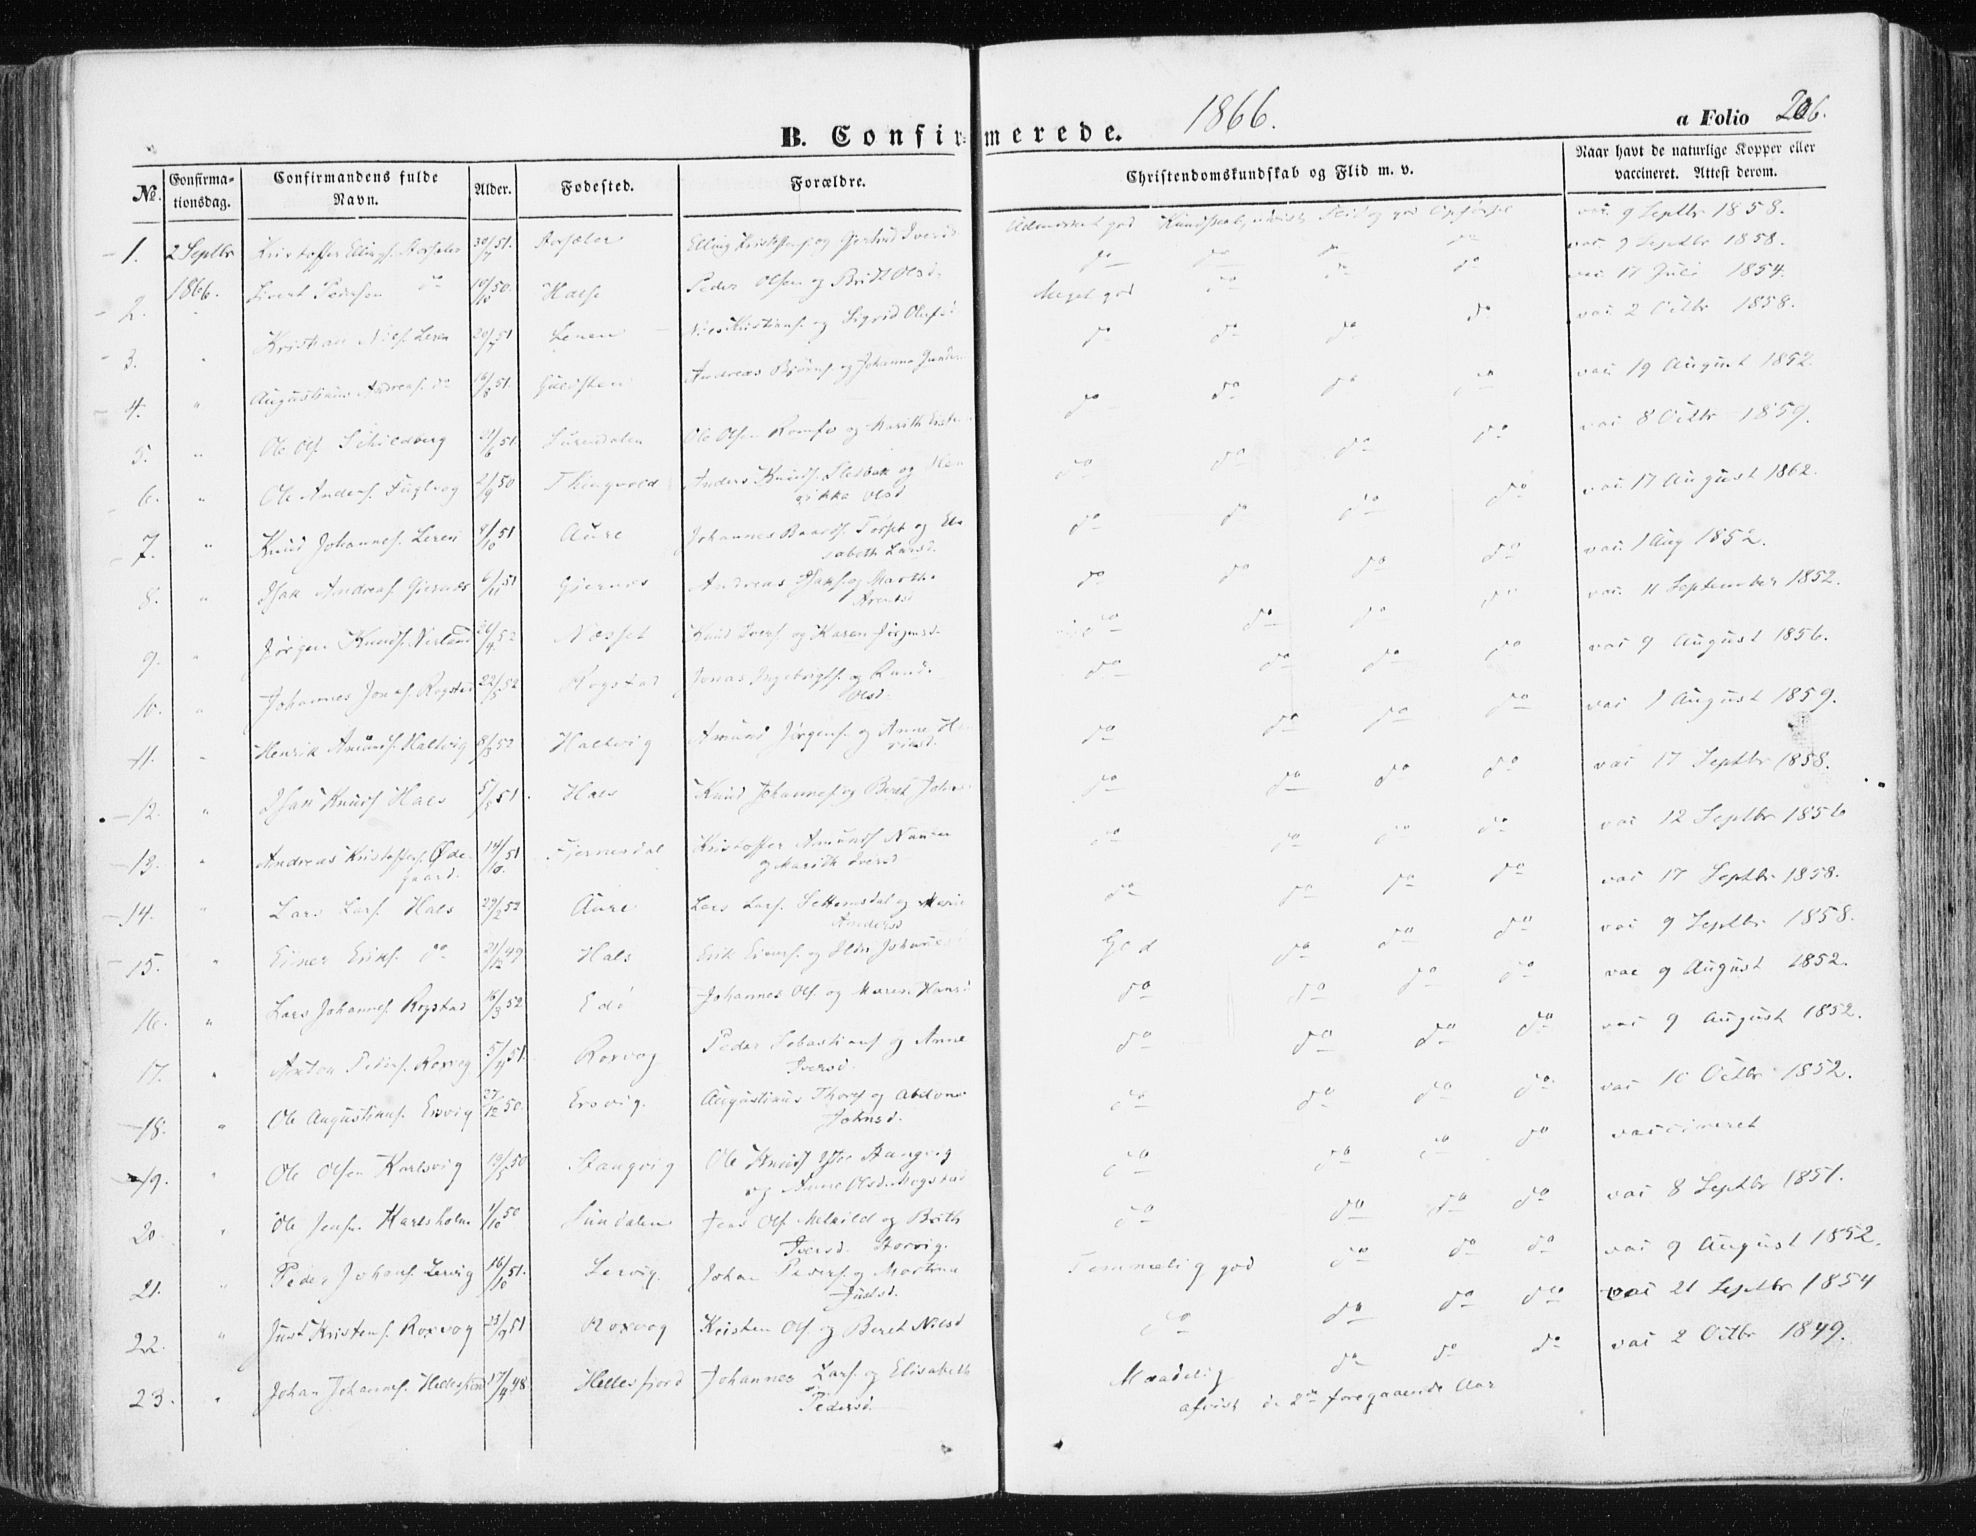 1866.
B. Confirmerede.
a Folio 206.
No.
Confirmationsdag.
Confirmandens fulde Navn.
Alder.
Fødested.
Forældre.
Christendomskundskab og Flid m. v.
Naar havt de naturlige Kopper eller vaccineret. Attest derom.
1. 2 Septbr 1866. Kristoffer Ellings. 30/7 51. Elling Kristoffers. og Gjertrud Iversd. Udmærket god Kundskab, Flid og god Opførsel vac. 9 Septbr 1858.
2. " Sivert Pedersen do 10/10 50. Halse Peder Olsen og Brit Olsd. do do do do vac 9 Septbr 1858.
3. " Kristian Niels. Leren 20/7 51 Leren Niels Kristians. og Sigrid Olufsd Meget god do do do vac 17 Juli 1854.
4. " Augustinus Andreas. do 16/8 51. Andreas Bjørns. og Johanna do do do do vac 2 Octbr 1858.
5. " Ole Ols. Schildberg /6 51. Surendalen Ole Olsen Romfo og Marith do do do do vac 19 August 1852.
6. " Ole Anders. Fuglvog 2/9 50 Thingvold Anders Knuds. og Henrikke Olsd do do do do vac 8 Octbr 1859.
7. " Knud Johannes. Leren /10 51 Aure Johannes Baards. Torset og Elisabeth Larsd. do do do do vac 17 August 1862.
8. " Isak Andreas. Gjernes 6/11 51 Gjernes Andreas Isaks. og Marth. Arentsd do do do do vac. 1 Aug 1852.
9. " Jørgen Knuds. Nirland 20/4 52 Nesset Knud Ivers. og Karen Jørgensd. do do do do vac. 11 September 1852.
10. " Johannes Jonas. Rogstad 22/5 52 Rogstad Jonas Ingebrigts. og Rand. Olsd. do do do do vac 9 August 1856.
11. " Henrik Amunds. Haltvig 8/3 52 Haltvig Amund Jørgens. og Anne Henriksd. do do do do vac 1 August 1859.
12. " Isak Knuds. Hals 5/ 51. Hals Knud Johannes. og Beret Johns. do do do do vac 17 Septbr 1858.
13. " Andreas Kristoffers. Ødegaard. 14/10 51 Fjernesdal Kristoffer Amunds. og Marith Iversd do do do do vac 12 Septbr 1856
14. " Lars Lars. Hals 29/2 52 Aure Lars Lars. Settemsdal og Marie Andersd do do do do vac 17 Septbr 1858.
15. " Einer Eriks. do 21/12 49 Hals Erik Einers. og Ildri Johannes God do do do vac 9 Septbr 1858.
16. " Lars Johannes. Rogstad 16/3 52 Edø Johannes Ols. og Maren Hansd do do do do vac 9 August 1852.
17. " Anton Peders. Roxvog 5/4 51. Roxvog Peder Sebastians. og Anne Iversd. do do do do vac 9 August 1852.
18. " Ole Augustinus. Ersvig 27/12 50. Ersvig. Augustinus Thores. og Abelone Johnsd. do do do do vac 10 Octbr 1852.
19. " Ole Olsen Karlsvig 19/5 50 Stangvig Ole Knuds. Stangvig og Anne Olsd. Mogstad do do do do vaccineret
20. " Ole Jens. Karlsholm 1/10 50 Sundalen Jens Ols. og Brith Iversd. Storvig. do do do do vac 8 Septbr 1851.
21. " Peder Johans. Lervig 16/10 51. Lervig. Johan Peders. og Martina Justsd. Temmelig god do do do vac 9 August 1852.
22. " Just Kristens. Roxvog 23/9 51 Roxvog Kristen Ols. og Beret Nilsd do do do do vac 21 Septbr 1854
23. " Johan Johannes. Hellesfjord 17/4 48 Hellesfjord Johannes Lars. og Elisabeth Pedersd. Maadelig do do do vac 2 Octbr 1849.
afvist de 2de foregaaende Aar